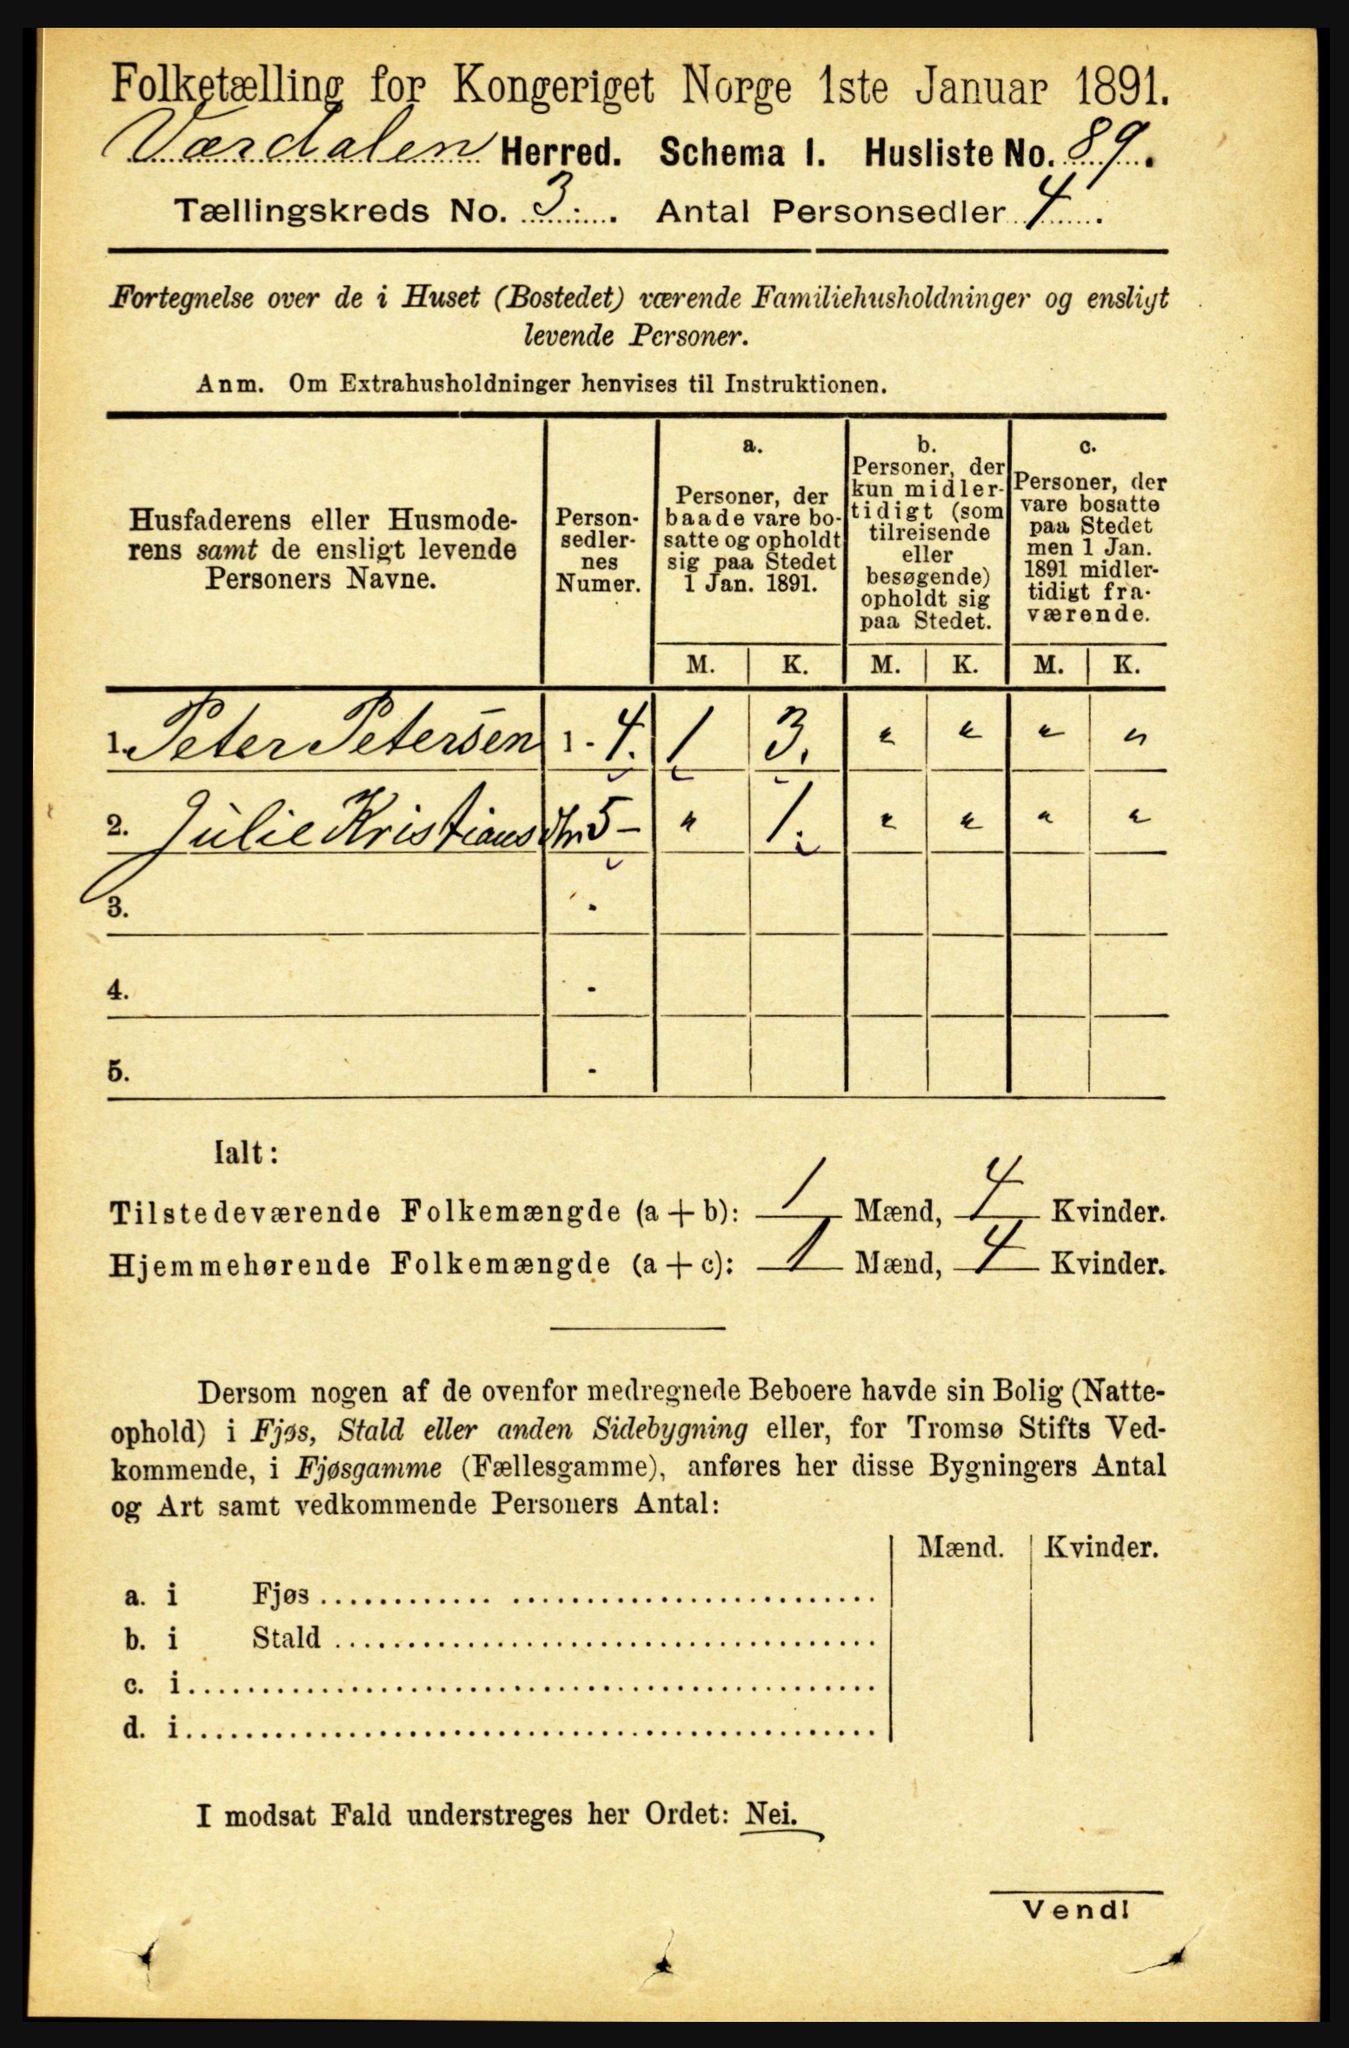 Folketælling for Kongeriget Norge 1ste Januar 1891.
Værdalen Herred. Schema I. Husliste No. 89.
Tællingskreds No. 3. Antal Personsedler 4.
Fortegnelse over de i Huset (Bostedet) værende Familiehusholdninger og ensligt
levende Personer.
Anm. Om Extrahusholdninger henvises til Instruktionen.
Husfaderens eller Husmode-
rens samt de ensligt levende
Personers Navne.
Person-
sedler-
nes
Numer.
a.
Personer, der
baade vare bo-
satte og opholdt
sig paa Stedet
1 Jan. 1891.
b.
Personer, der
kun midler-
tidigt (som
tilreisende
eller
besøgende)
opholdt sig
paa Stedet.
c.
Personer, der
vare bosatte
paa Stedet
men 1 Jan.
1891 midler-
tidigt fra-
værende.
M. K. M. K. M. K.
1. Peter Petersen 1 - 4. 1 3. " " " "
2. Julie Kristiansdtr. 5 - " 1. " " " "
3. -
4. -
5. -
Ialt:
Tilstedeværende Folkemængde (a + b): 1 Mænd, 4 Kvinder.
Hjemmehørende Folkemængde (a + c): 1 Mænd, 4 Kvinder.
Dersom nogen af de ovenfor medregnede Beboere havde sin Bolig (Natte-
ophold) i Fjøs, Stald eller anden Sidebygning eller, for Tromsø Stifts Ved-
kommende, i Fjøsgamme (Fællesgamme), anføres her disse Bygningers Antal
og Art samt vedkommende Personers Antal:
Mænd. Kvinder.
a. i Fjøs
b. i Stald
c. i
d. i
I modsat Fald understreges her Ordet: Nei.
Vend!